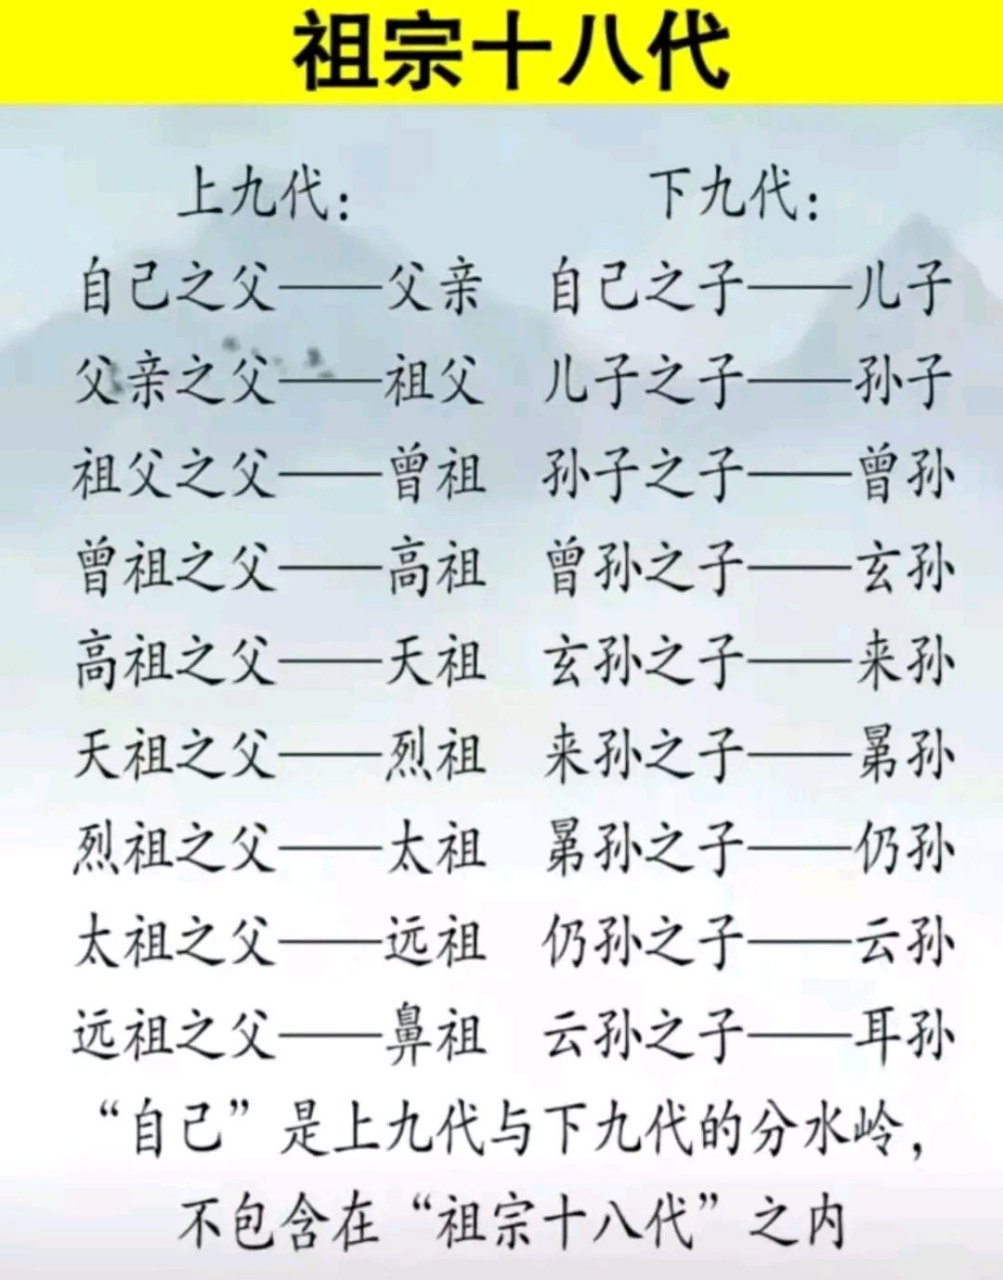 祖宗十八代
上九代： 下九代：
自己之父——父亲 自己之子——儿子
父亲之父——祖父 儿子之子——孙子
祖父之父——曾祖 孙子之子——曾孙
曾祖之父——高祖 曾孙之子——玄孙
高祖之父——天祖 玄孙之子——来孙
天祖之父——烈祖 来孙之子——晜孙
烈祖之父——太祖 晜孙之子——仍孙
太祖之父——远祖 仍孙之子——云孙
远祖之父——鼻祖 云孙之子——耳孙
“自己”是上九代与下九代的分水岭，
不包含在“祖宗十八代”之内